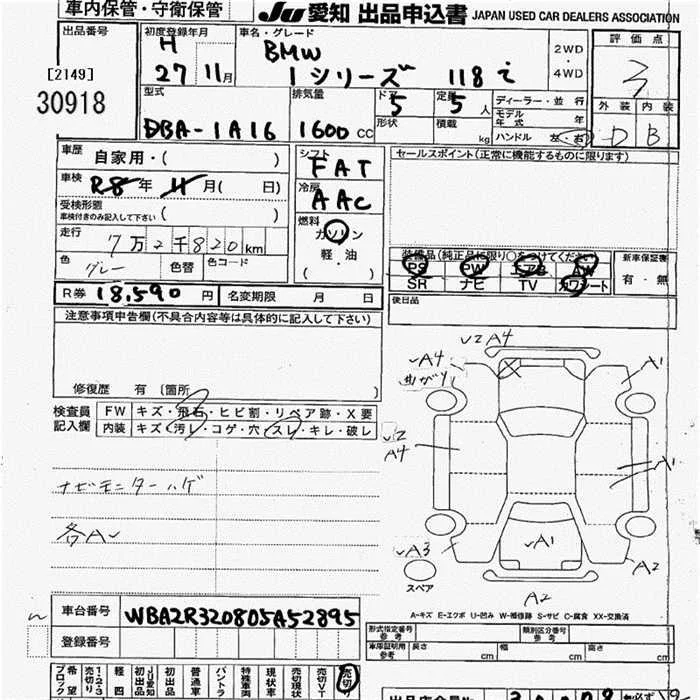 車内保管・守衛保管
JU 愛知 出品申込書 JAPAN USED CAR DEALERS ASSOCIATION
出品番号
[2149]
30918
初度登録年月
H
27 11月
車名・グレード
BMW
1シリーズ 118i
2WD
・
4WD
評価点
3
外装 内装
D B
型式
DBA-1A16
排気量
1600 CC
ドア
5
形状
定員
5 人
積載 kg
ディーラー・並行
モデル年式 年
ハンドル 左・右
車歴 自家用・( )
車検 R8年 11月( 日)
受検形態
車検付きのみ記入して下さい ( )
走行 7万2千820km
色 グレー 色替 色コード
シフト
FAT
冷房
AAC
燃料
ガソリン
軽・油
( ・ )
セールスポイント(正常に機能するものに限ります)
装備品(純正品に限り○をつけてください)
PS PW エアB AW
SR ナビ TV カワシート
新車保証書
有・無
後日品
R券 18,590 円 名変期限 月 日
注意事項申告欄(不具合内容等は具体的に記入して下さい)
修復歴 有 〔箇所 〕
検査員
記入欄
FW キズ・飛石・ヒビ割・リペア跡・X要
内装 キズ・汚レ・コゲ・穴・スレ・キレ・破レ
ナビモニターハゲ
各A〜
U2 A4
A4
曲がり
A1
U2
A4
A1
A3
A1
A2
A2
スペア
A-キズ E-エクボ U-凹み W-補修跡 S-サビ C-腐食 XX-交換済
車台番号 WBA2R320805A52895
登録番号
形式指定番号
参考
類別区分番号
参考
車庫証明用
参考
長さ cm 幅 cm 高さ cm
希望ブロック
売切り 1・2・3
軽四
JU愛知初出品
初出品
普通車
バントラ
特殊車両
現状車
売切現状
売切VT
売切
出品店会員